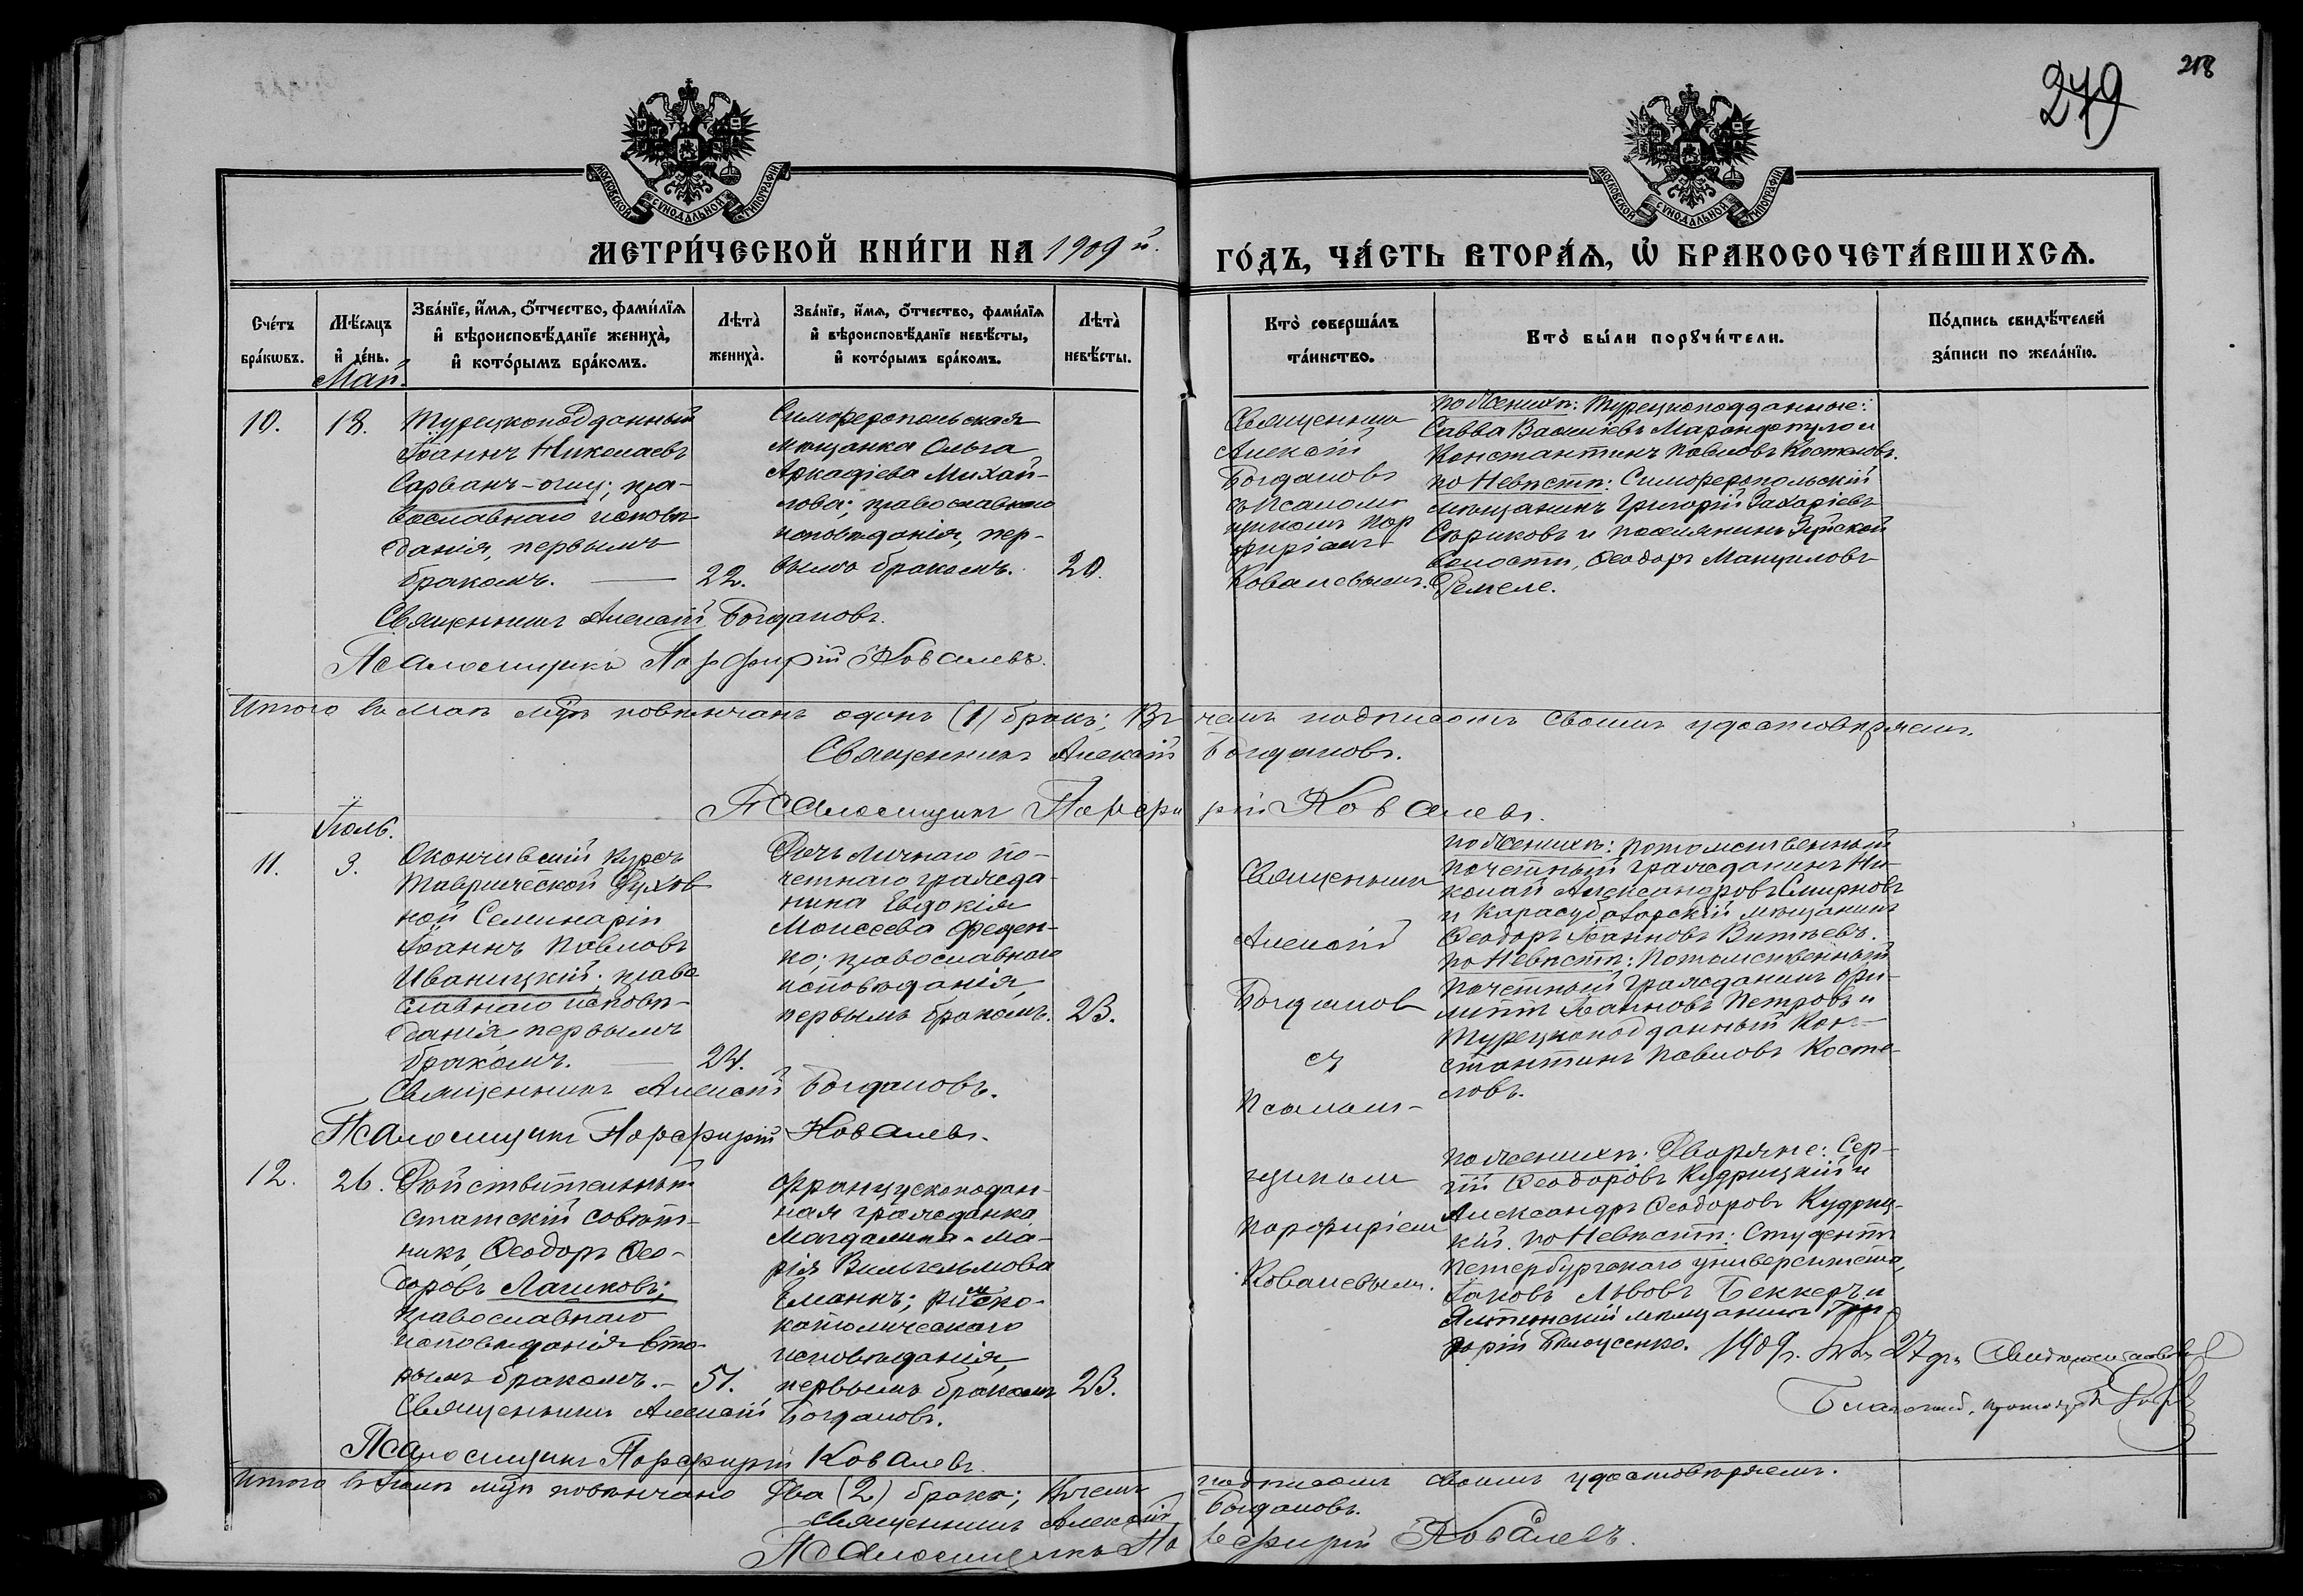 279
218
МОСКОВСКОЙ СѴНОДАЛЬНОЙ ТИПОГРАФІИ
МОСКОВСКОЙ СѴНОДАЛЬНОЙ ТИПОГРАФІИ
МЕТРИ́ЧЕСКОЙ КНИ́ГИ НА 1909 й. ГО́ДЪ, ЧА́СТЬ ВТОРА́Ѧ, Ѽ БРАКОСОЧЕТА́ВШИХСѦ.
Сче́тъ бра́кѡвъ.
Мѣ́сяцъ и҆ де́нь.
Зва́нїе, и҆́мѧ, ѻ҆́тчество, фами́лїѧ
и҆ вѣроисповѣ́данїе жениха̀,
и҆ кото́рымъ бра́комъ.
Лѣта̀ жениха̀.
Зва́нїе, и҆́мѧ, ѻ҆́тчество, фами́лїѧ
и҆ вѣроисповѣ́данїе невѣ́сты,
и҆ кото́рымъ бра́комъ.
Лѣта̀ невѣ́сты.
Кто̀ соверша́лъ та́инство.
Кто̀ бы́ли порꙋчи́тели.
По́дпись свидѣ́телей
за́писи по жела́нїю.
Май.
10.
18.
Турецкоподданный
Іоаннъ Николаевъ
Сарванъ-оглу; пра-
вославнаго исповѣ-
данія, первымъ
бракомъ. —
22.
Симферопольская
мѣщанка Ольга
Аркадіева Михай-
лова; православнаго
исповѣданія, пер-
вымъ бракомъ.
20.
Священникъ
Алексій
Богдановъ
съ псалом-
щикомъ Пор
фиріемъ
Ковалевымъ.
По Женихѣ: Турецкоподданные:
Савва Васильевъ Марандопуло и
Константинъ Павловъ Костеловъ.
по Невѣстѣ: Симферопольскій
мѣщанинъ Григорій Захаріевъ
Сѣриковъ и поселянинъ
волости, Ѳеодоръ
Священникъ Алексій Богдановъ.
Псаломщикъ Порфирій Ковалевъ.
Итого въ маѣ мцѣ повѣнчанъ одинъ (1) бракъ; Въ чемъ подписомъ своимъ удостовѣряемъ.
Священникъ Алексій Богдановъ.
Псаломщикъ Порфирій Ковалевъ.
Іюль.
11.
3.
Окончившій курсъ
Таврической Духов
ной Семинаріи
Іоаннъ Павловъ
Иваницкій; право
славнаго исповѣ-
данія, первымъ
бракомъ. —
24.
Дочь личнаго по-
четнаго гражда-
нина Евдокія
Моисеева Феден-
ко; православнаго
исповѣданія,
первымъ бракомъ.
23.
Священникъ
Алексій
Богдановъ
съ
псалом-
щикомъ
Порфиріемъ
Ковалевымъ.
по Женихѣ: потомственный
почетный гражданинъ Ни-
колай Александровъ Смирновъ
и Карасубазарскій мѣщанинъ
Ѳеодоръ Іоанновъ
по Невѣстѣ: Потомственный
Почетный гражданинъ Фи-
липпъ Іоанновъ Петровъ и
Турецкоподданный Кон-
стантинъ Павловъ Косте-
ловъ.
Священникъ Алексій Богдановъ.
Псаломщикъ Порфирій Ковалевъ.
12.
26.
Дѣйствительный
статскій совѣт-
никъ, Ѳеодоръ Ѳео-
доровъ Лашковъ;
православнаго
исповѣданія вто-
рымъ бракомъ. —
51.
Французскоподан-
ная гражданка
Магдалина-Ма-
рія Вильгельмова
Эманъ; римско-
католическаго
исповѣданія,
первымъ бракомъ
23.
по Женихѣ: Дворяне: Сер-
гій Ѳеодоровъ Кудрицкій и
Александръ Ѳеодоровъ Кудриц-
кій. по Невѣстѣ: Студентъ
Петербургскаго университета,
Яковъ Львовъ Беккеръ и
Ялтинскій мѣщанинъ Гри-
горій Бѣлоусенко.
1909 г. 27 дня Свидѣтельствовалъ
Священникъ Алексій Богдановъ.
Псаломщикъ Порфирій Ковалевъ.
Итого въ Іюлѣ мцѣ повѣнчано Два (2) брака; въ чемъ подписомъ своимъ удостовѣряемъ.
Священникъ Алексій Богдановъ.
Псаломщикъ Порфирій Ковалевъ.